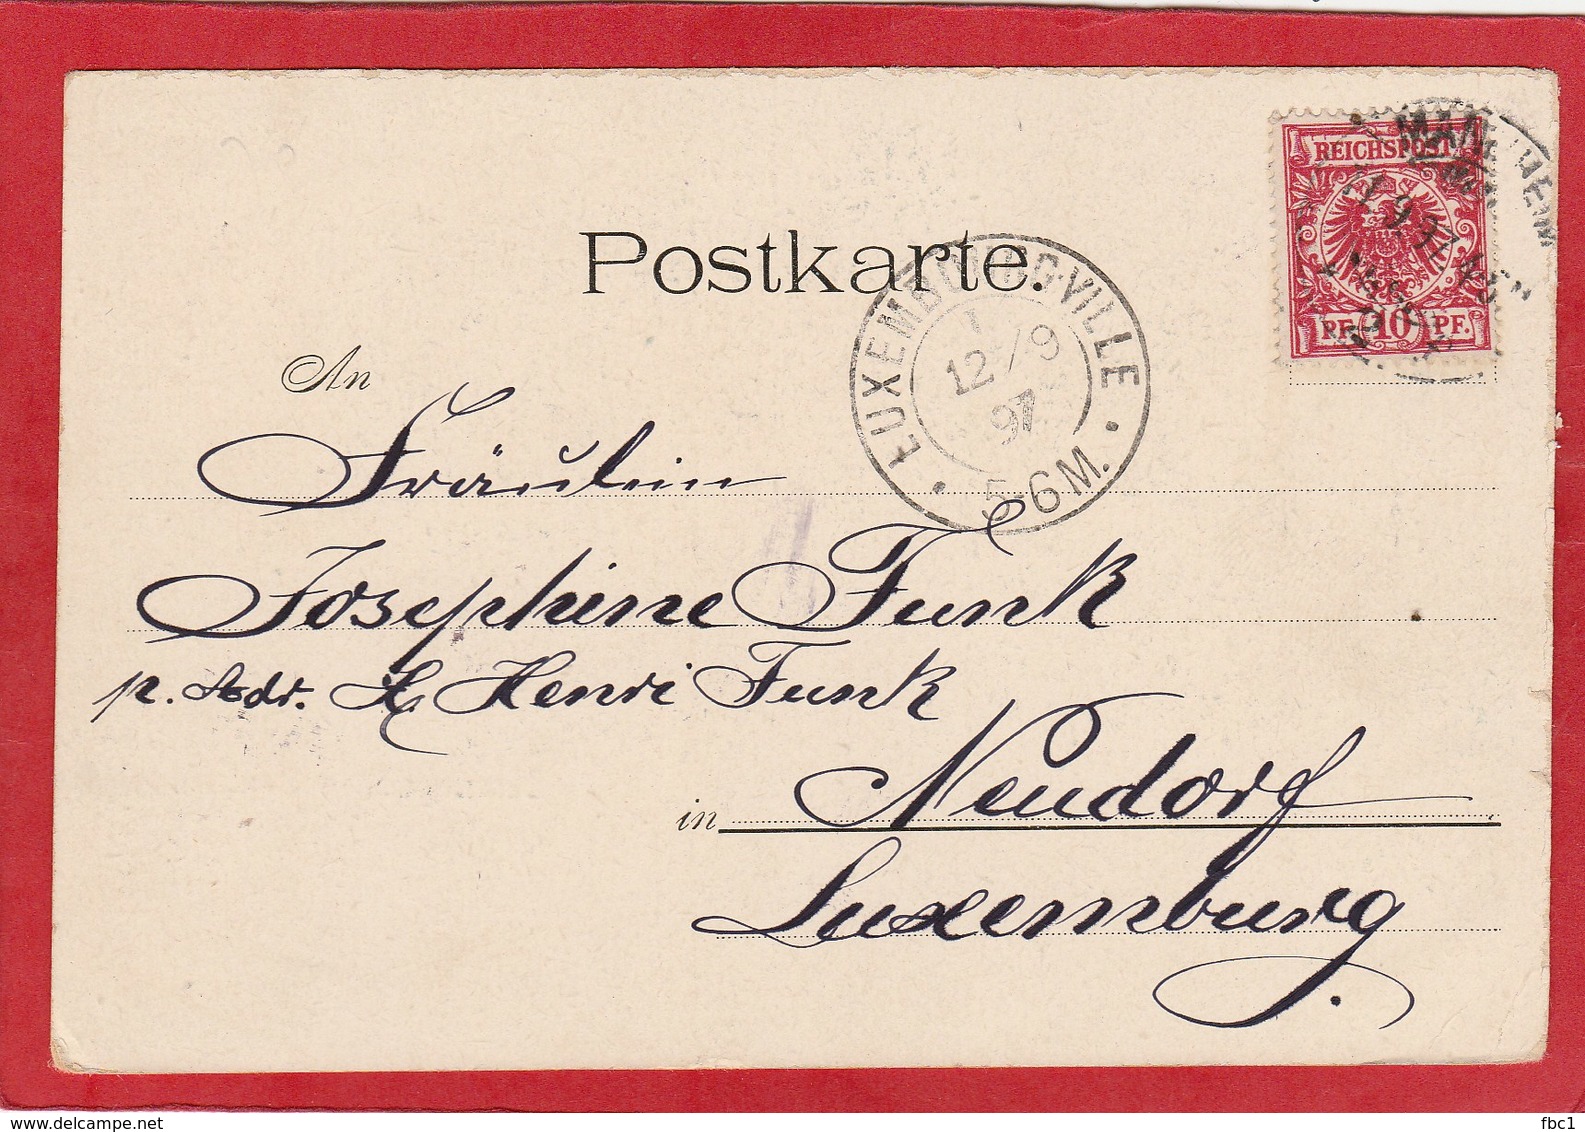 Postkarte.
REICHSPOST
PF. 10 PF.
LUXEMBOURG-VILLE
12 / 9
97
5-6 M.
An
Fräulein
Josephine Funk
p. Adr. H Henri Funk
in Neudorf
Luxemburg.
www.delcampe.net
fbc1